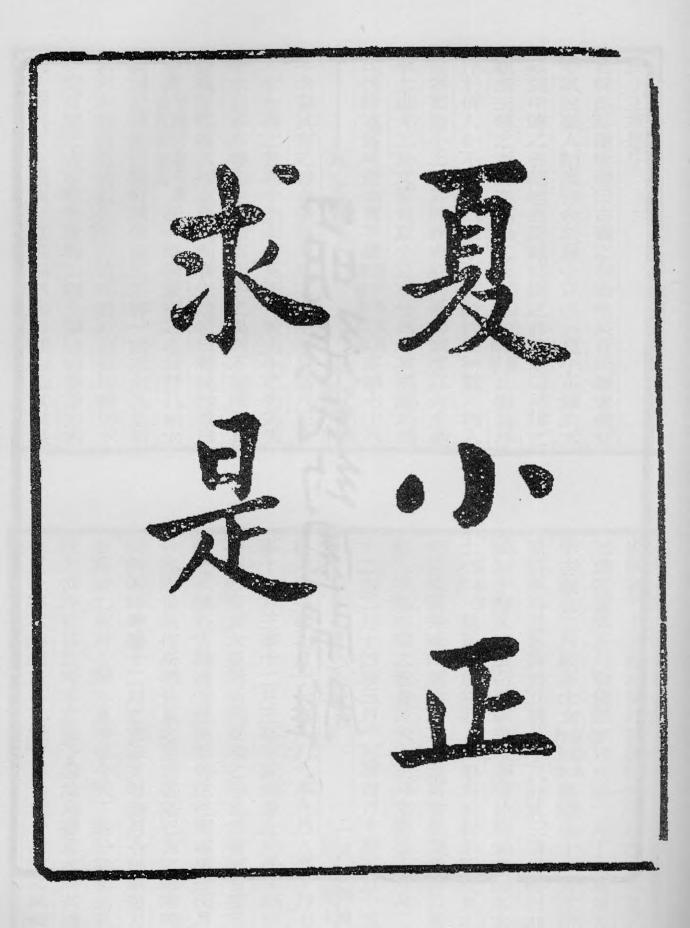 夏小正
求是